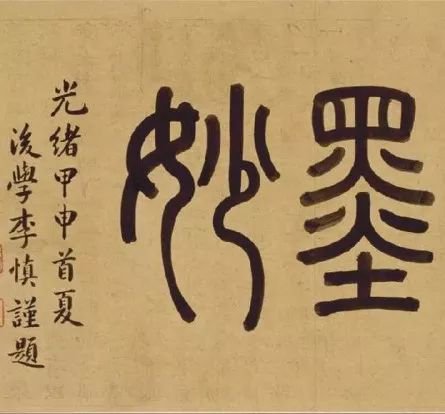 墨妙
光緒甲申首夏
後學李慎謹題